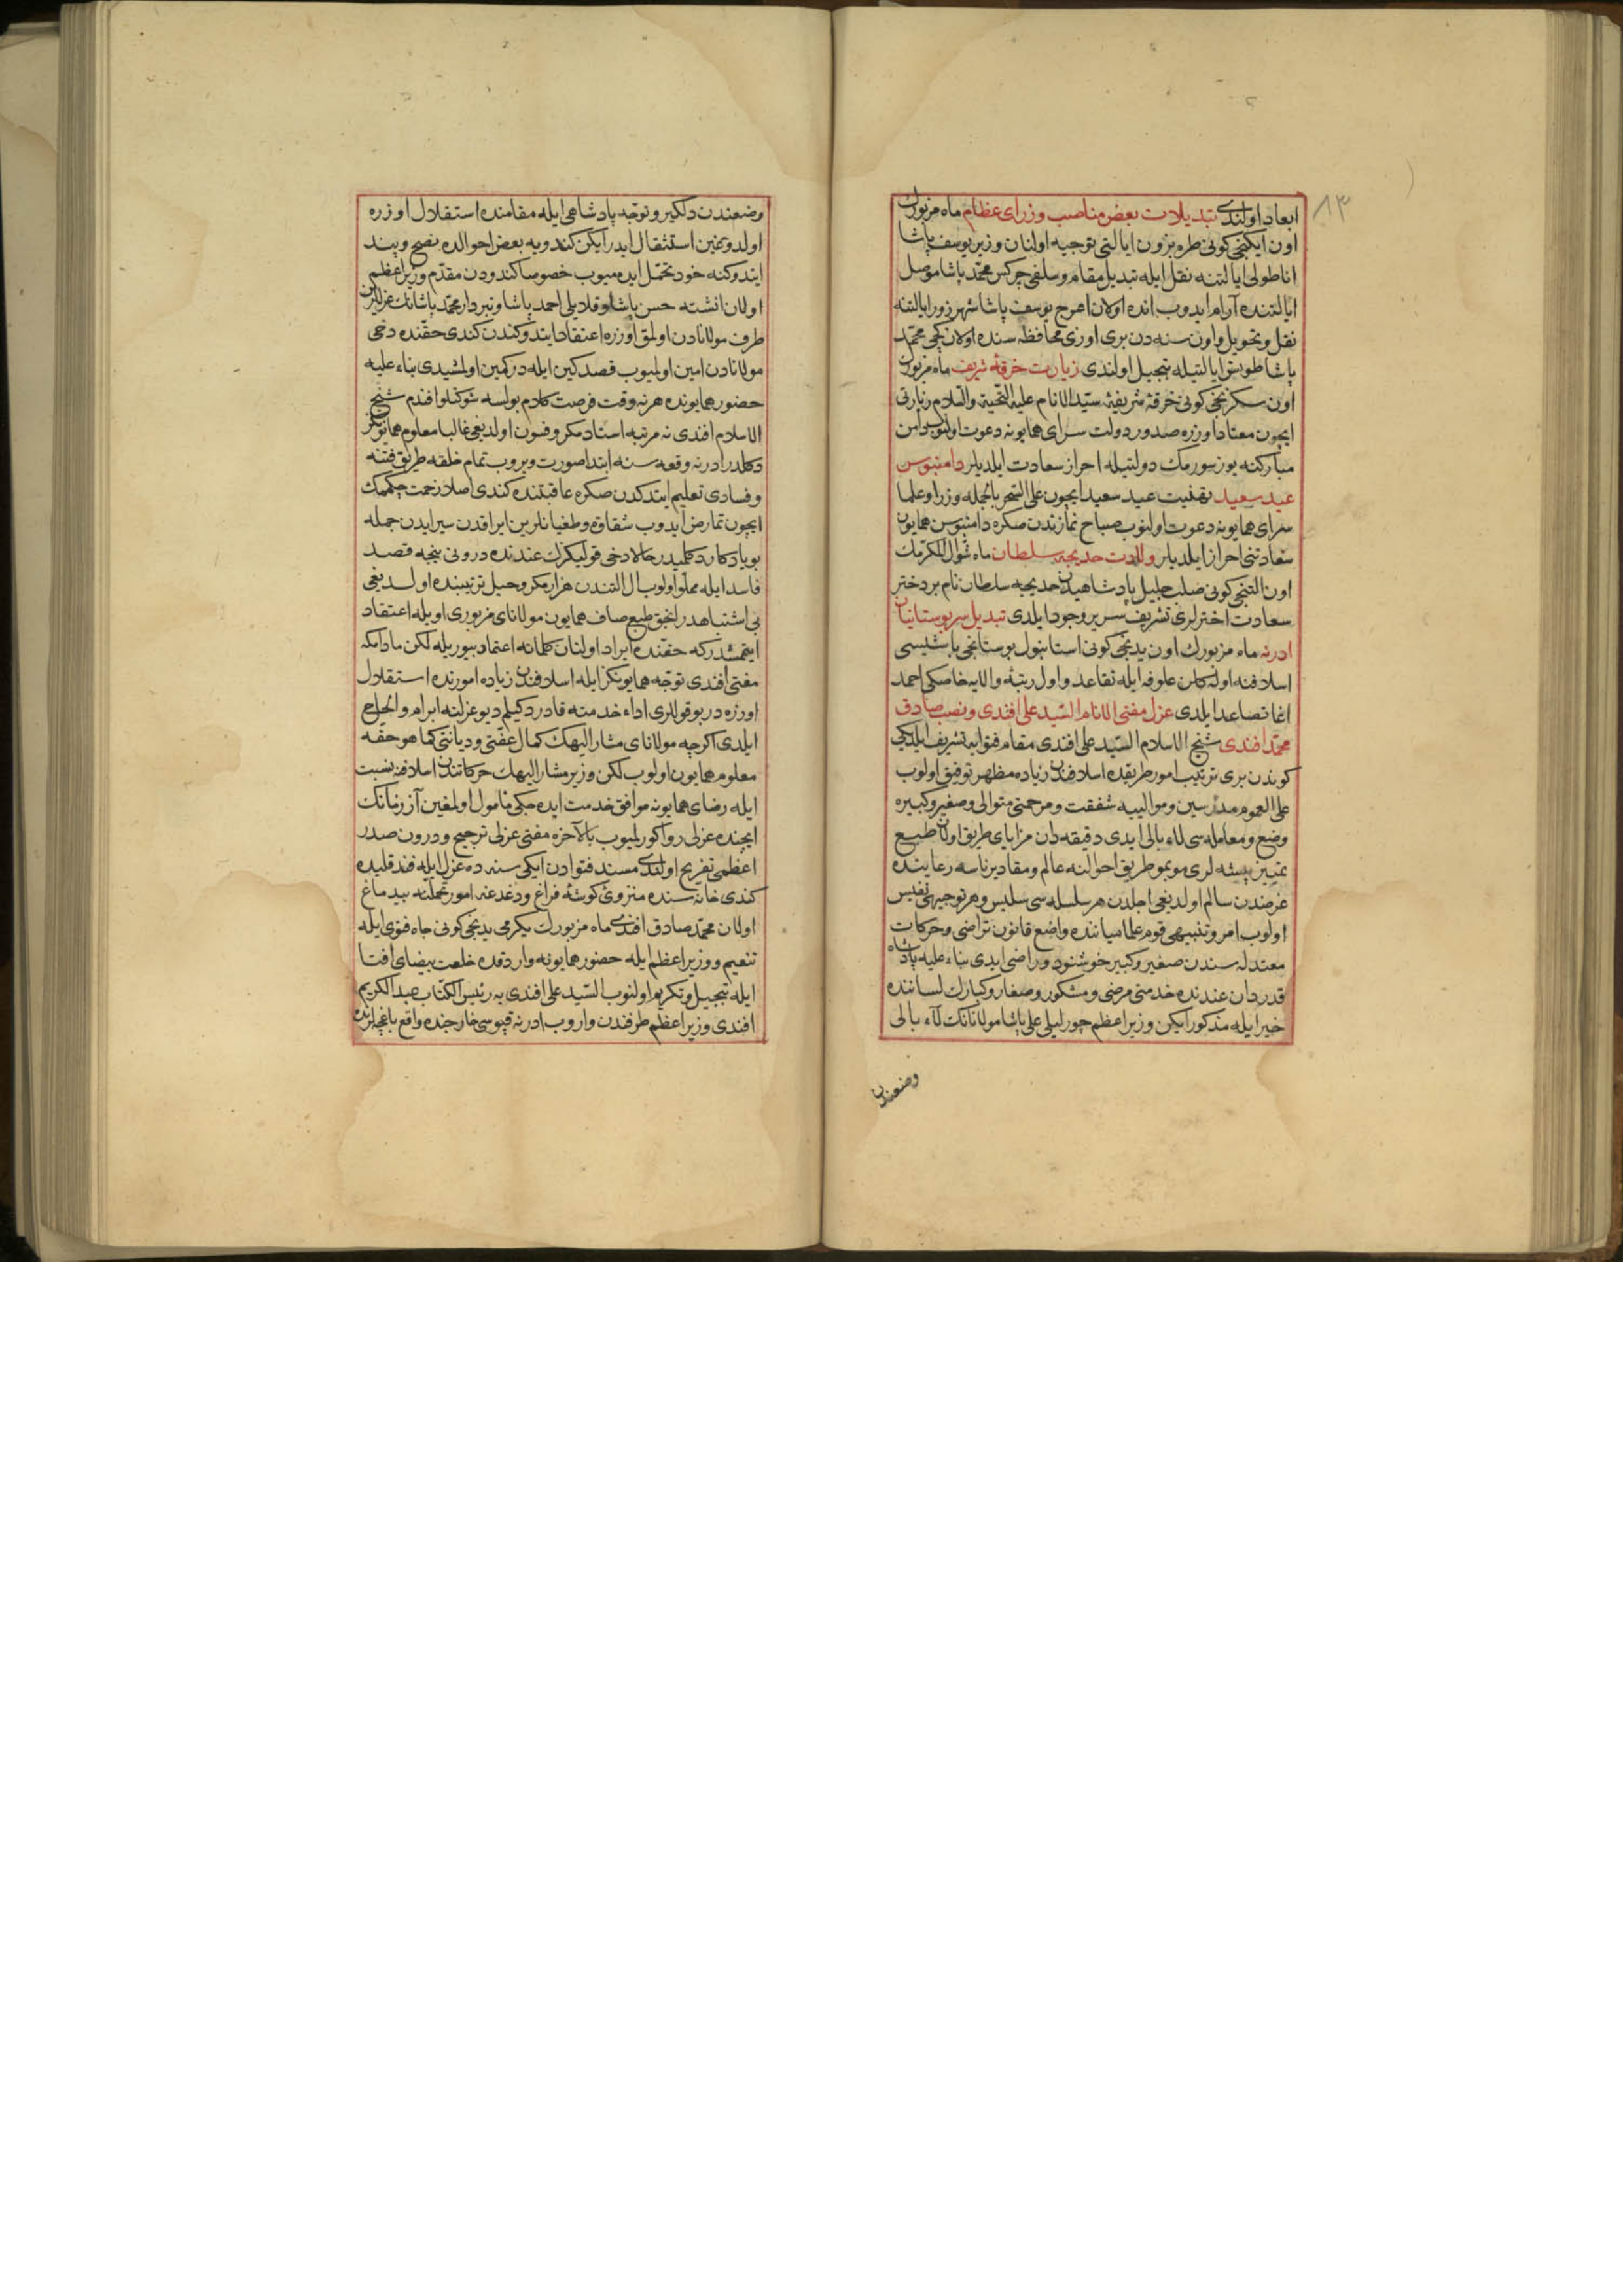 ٨٣
ابعاد اولندی تبدیلات بعض مناصب وزرای عظام ماه مزبورك
اون ایكنجی كونی طره بزون ایالتی توجیه اولنان وزیر یوسف پاشا
اناطولی ایالتنه نقل ایله تبدیل مقام و سلفی چركس محمد پاشا موصل
ایالتنده آرام ایدوب انده اولان اعرج یوسف پاشا شهرزور ایالتنه
نقل و تحویل و اون سنه دن بری اوزی محافظه سنده اولان محمد
پاشا ایالتیله تبجیل اولندی زیارت خرقهٔ شریف ماه مزبورك
اون سكزنجی كونی خرقهٔ شریفهٔ سید الانام علیه التحیة والسلام زیارتی
ایچون معتاد اوزره صدور دولت سرای همایونه دعوت اولنوب دامن
مباركنه یوز سورمك دولتیله احراز سعادت ایلدیلر دامنبوس
عید سعید تهنیت عید سعید ایچون علی السحر بالجمله وزرا و علما
سرای همایونه دعوت اولنوب صباح نمازندن صكره دامنبوس همایون
سعادتنی احراز ایلدیلر ولادت خدیجه سلطان ماه شوال المكرمك
اون التنجی كونی صلب جلیل پادشاهیدن خدیجه سلطان نام بر دختر
سعادت اخترلری تشریف سریر وجود ایلدی تبدیل سر بوستانیان
ادرنه ماه مزبورك اون یدنجی كونی استانبول بوستانجی باشیسی
اسلافنه اوله كلن علوفه ایله تقاعد و اول رتبهٔ والایه خاصكی احمد
اغا تصاعد ایلدی عزل مفتی الانام السید علی افندی و نصب صادق
محمد افندی شیخ الاسلام السید علی افندی مقام فتوایه تشریف ایلدیكی
كوندن بری ترتیب امور طریقده اسلافندن زیاده مظهر توفیق اولوب
علی العموم مدرسین و موالییه شفقت و مرحمتی متوالی و صغیر و كبیره
وضع و معامله سی لاء بالی ایدی دقیقه دان مزایای طریق اولان طبع
تمییز پیشه لری موبمو طریق احوالنه عالم و مقادیر ناسه رعایتده
غرضدن سالم اولدیغی اجلدن هر سلسله سی سلیس و هر توجیهی نفیس
اولوب امر و تنبیهی قوم علما میاننده واضع قانون تراضی و حركات
معتدله سندن صغیر و كبیر خوشنود و راضی ایدی بناء علیه پادشاه
قدردان عندنده خدمتی مرضی و مشكور و صغار و كبارك لساننده
خیر ایله مذكور ایكن وزیر اعظم چورلیلی علی پاشا مولانانك لاء بالی
وضعندن
وضعندن دلگیر و توجه پادشاهی ایله مقامنده استقلال اوزره
اولدوغین استثقال ایدر ایكن كندویه بعض احوالده نصح و پند
ایتدوكنه خود تحمل ایده میوب خصوصا كندودن مقدم وزیر اعظم
اولان انشته حسن پاشا و قلایلی احمد پاشا و تبردار محمد پاشانك عزللرین
طرف مولانادن اولمق اوزره اعتقاد ایتدوكندن كندی حقنده دخی
مولانادن امین اولمیوب قصد كین ایله در كمین اولمشیدی بناء علیه
حضور همایونده هر نه وقت فرصت كلام بولسه شوكتلو افندم شیخ
الاسلام افندی نه مرتبه استاد مكر و فسون اولدیغی غالبا معلوم همایونكز
دكلدر ادرنه وقعه سنه ابتدا صورت ویروب تمام خلقه طریق فتنه
و فسادی تعلیم ایتدكدن صكره عاقبتنده كندی اصلا زحمت چكمامك
ایچون تمارض ایدوب شقاق و طغیانلرین ایراقدن سیر ایدن جمله
بو یادكار دكلمیدر حالا دخی قوللیكزك عندنده درونی نیجه قصد
فاسد ایله مملو اولوب ال التندن هزار مكر و حیل ترتیبنده اولدیغی
بی اشتباهدر انجق طبع صاف همایون مولانای مزبوری اویله اعتقاد
ایتمشدر كه حقنده ایراد اولنان كلمانه اعتماد بیوریله لكن مادامكه
مفتی افندی توجه همایونكز ایله اسلافندن زیاده امورنده استقلال
اوزره در بو قوللری اداء خدمته قادر دكیلم دیو عزلنه ابرام و الحاح
ایلدی اكرچه مولانای مشار الیهك كمال عفتی و دیانتی كما هو حقه
معلوم همایون اولوب لكن وزیر مشار الیهك حركاتندن اسلافنه نسبت
ایله رضای همایونه موافق خدمت ایده جكی مأمول اولمغین آز زمانك
ایچنده عزلی روا كورلمیوب بالآخره مفتی عزلی ترجیح و درون صدر
اعظمی تفریح اولندی مسند فتوادن ایكی سنه ده عزل ایله قندقلیده
كندی خانه سنده منزوی كوشهٔ فراغ و دغدغهٔ امور بیدماغ
اولان محمد صادق افندی ماه مزبورك یكرمی یدنجی كونی جاه فتوی ایله
تنعیم و وزیر اعظم ایله حضور همایونه واردقده خلعت بیضای افتا
ایله تبجیل و تكریم اولنوب السید علی افندی یه رئیس الكتاب عبد الكریم
افندی وزیر اعظم طرفندن واروب ادرنه قپوسی خارجنده واقع باغچه لرنده